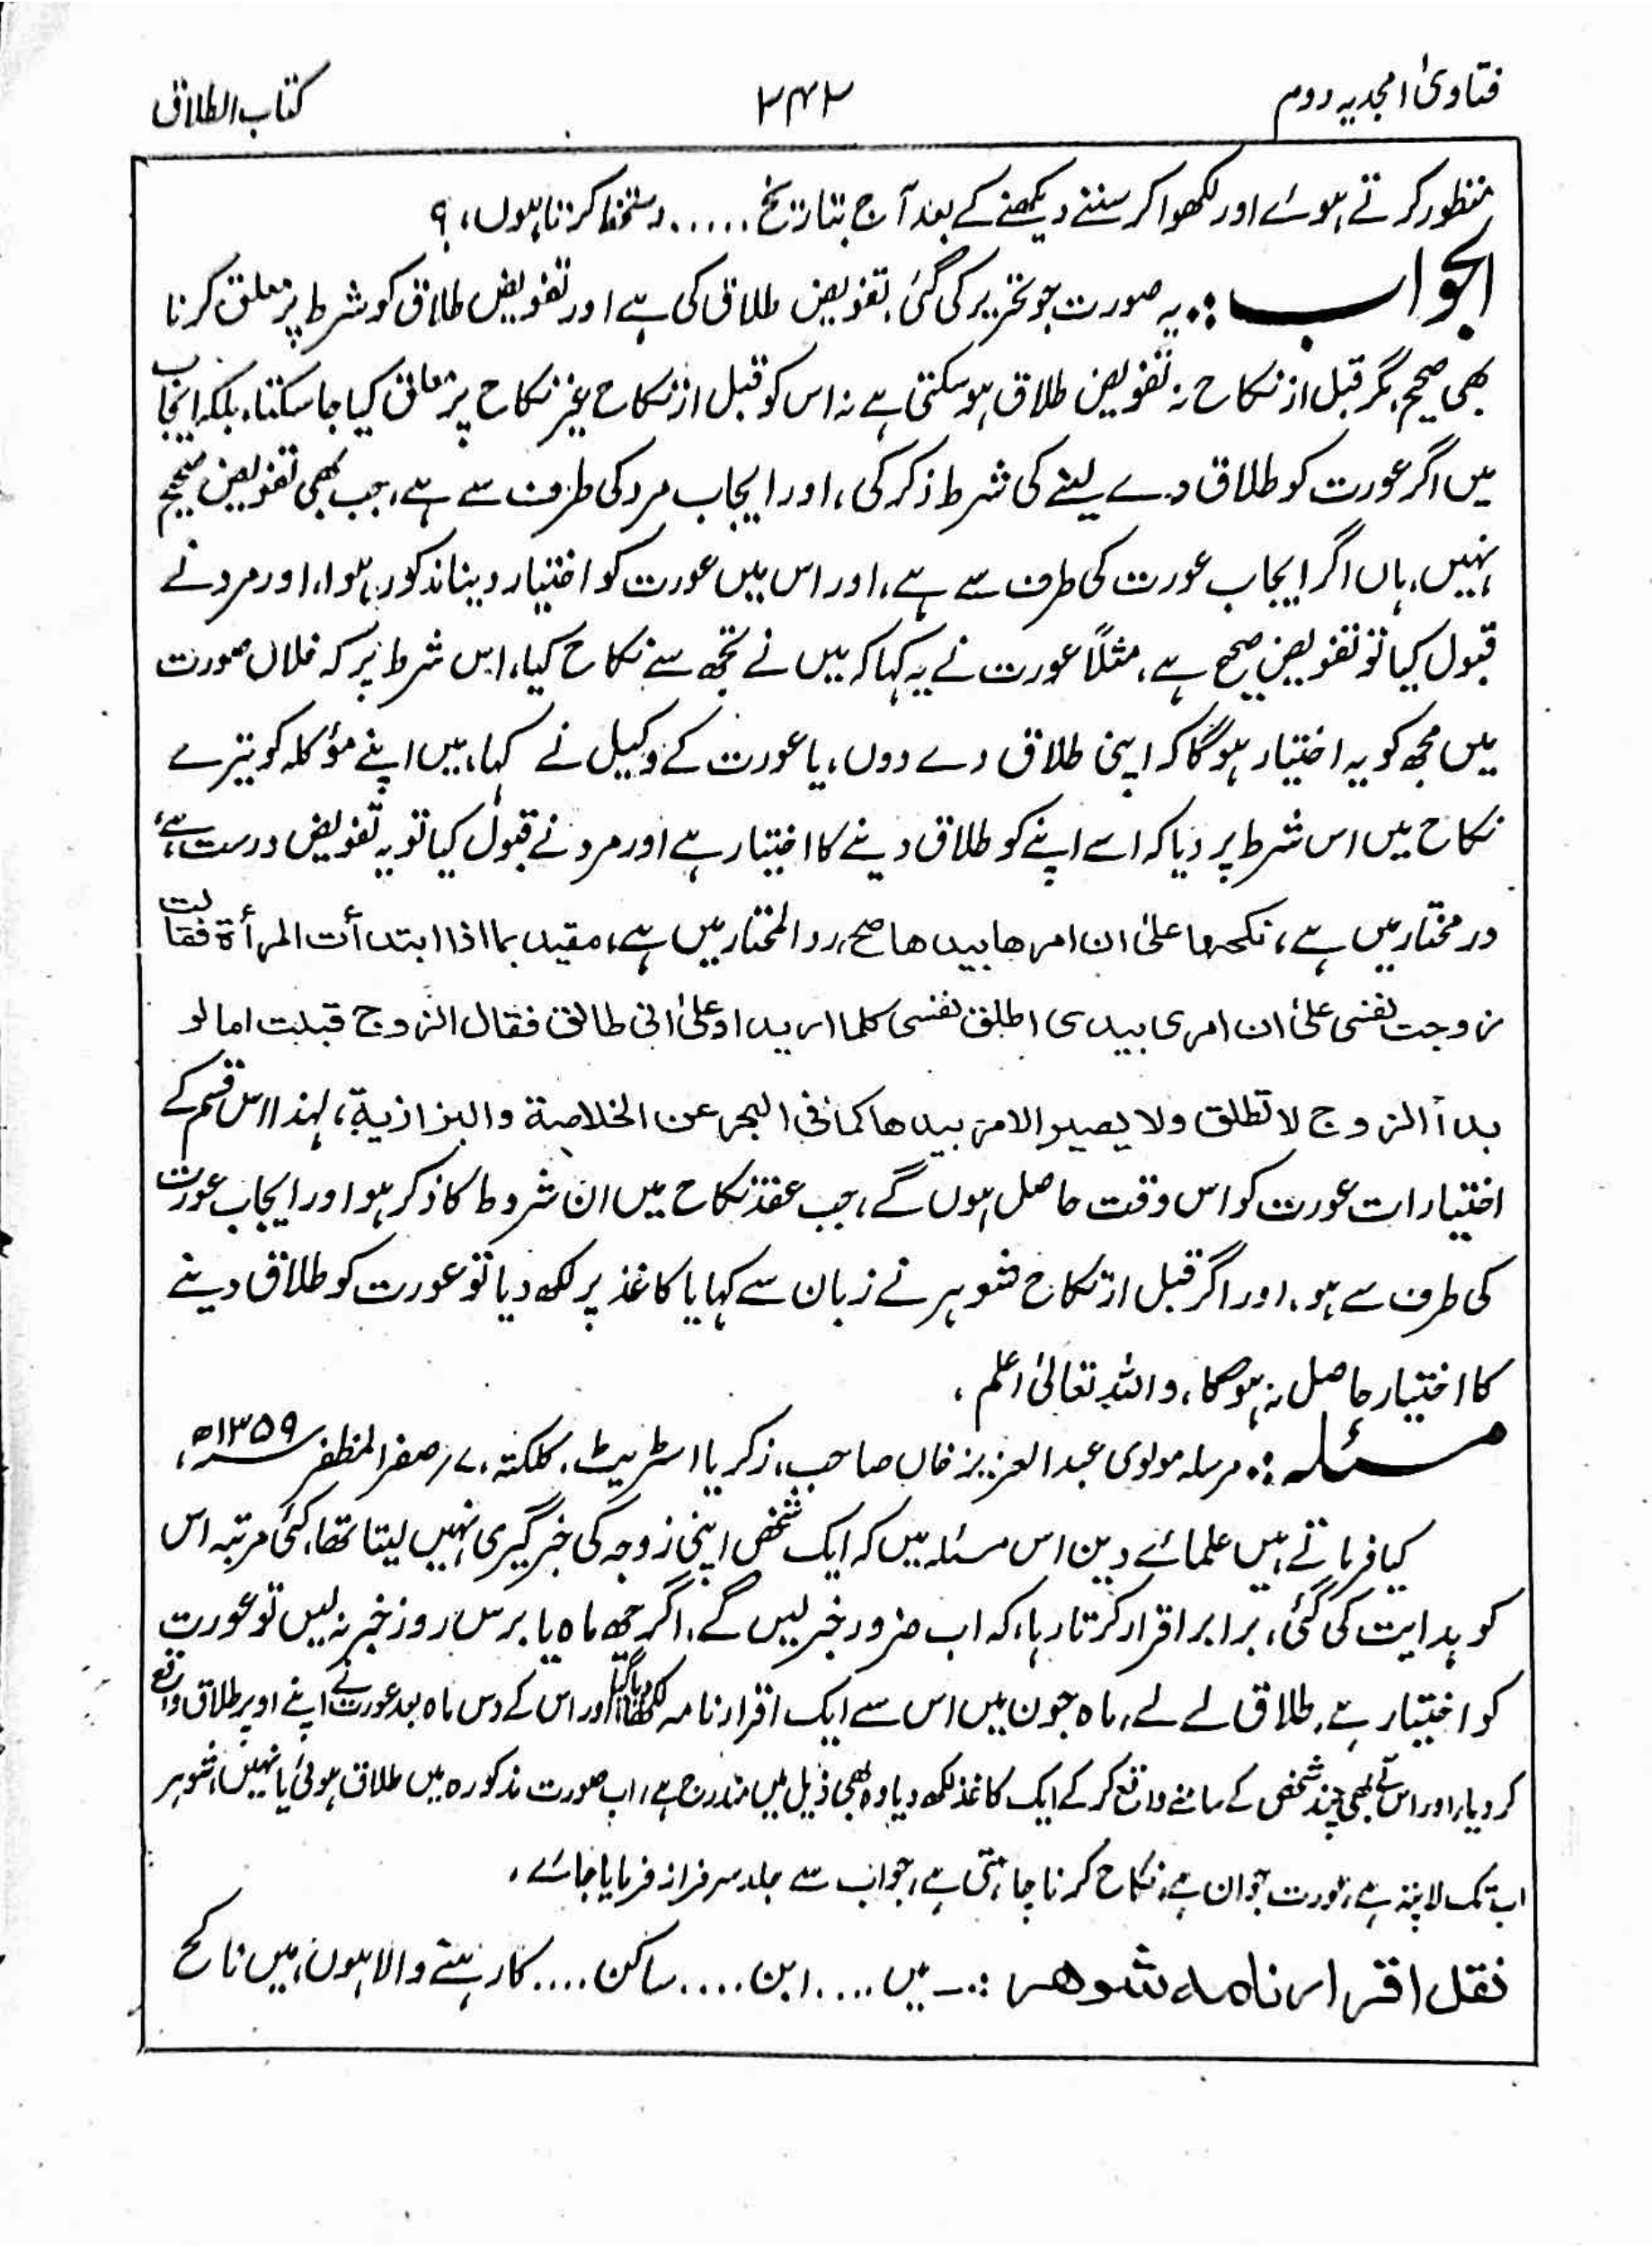 فتاویٰ امجدیہ دوم
۲۴۲
کتاب الطلاق
منظور کرتے ہوئے اور لکھوا کر سننے دیکھنے کے بعد آج بتاریخ ...... دستخط کرتا ہوں، ؟
الجواب :: یہ صورت جو تحریر کی گئی، تفویض طلاق کی ہے اور تفویض طلاق کو شرط پر معلق کرنا
بھی صحیح، مگر قبل از نکاح نہ تفویض طلاق ہو سکتی ہے نہ اس کو قبل از نکاح غیر نکاح پر معلق کیا جا سکتا، بلکہ ایجاب
میں اگر عورت کو طلاق دے لینے کی شرط ذکر کی، اور ایجاب مرد کی طرف سے ہے، جب بھی تفویض صحیح
نہیں، ہاں اگر ایجاب عورت کی طرف سے ہے، اور اس میں عورت کو اختیار دینا مذکور ہوا، اور مرد نے
قبول کیا تو تفویض صحیح ہے، مثلاً عورت نے یہ کہا کہ میں نے تجھ سے نکاح کیا، اس شرط پر کہ فلاں صورت
میں مجھ کو یہ اختیار ہوگا کہ اپنی طلاق دے دوں، یا عورت کے وکیل نے کہا، میں اپنے مؤکلہ کو تیرے
نکاح میں اس شرط پر دیا کہ اسے اپنے کو طلاق دینے کا اختیار ہے اور مرد نے قبول کیا تو یہ تفویض درست ہے،
در مختار میں ہے، نکحہا علیٰ ان امرھا بیدھا صح، رد المحتار میں ہے، مقید بما اذا ابتدأت المرأۃ فقالت
زوجت نفسی علیٰ ان امری بیدی اطلق نفسی کلما ارید او علیٰ انی طالق فقال الزوج قبلت اما لو
بدأ الزوج لا تطلق ولا یصیر الامر بیدھا کما فی البحر عن الخلاصۃ والبزازیۃ، لہٰذا اس قسم کے
اختیارات عورت کو اس وقت حاصل ہوں گے، جب عقد نکاح میں ان شروط کا ذکر ہو اور ایجاب عورت
کی طرف سے ہو، اور اگر قبل از نکاح شوہر نے زبان سے کہا یا کاغذ پر لکھ دیا تو عورت کو طلاق دینے
کا اختیار حاصل نہ ہوگا، واللہ تعالیٰ اعلم،
مسئلہ :: مرسلہ مولوی عبد العزیز خاں صاحب، زکریا اسٹریٹ، کلکتہ، ۷/ صفر المظفر ۱۳۵۹ھ،
کیا فرماتے ہیں علمائے دین اس مسئلہ میں کہ ایک شخص اپنی زوجہ کی خبر گیری نہیں لیتا تھا، کئی مرتبہ اس
کو ہدایت کی گئی، برابر اقرار کرتا رہا، کہ اب ضرور خبر لیں گے، اگر چھ ماہ یا برس روز خبر نہ لیں تو عورت
کو اختیار ہے، طلاق لے لے، ماہ جون میں اس سے ایک اقرار نامہ لکھایا گیا اور اس کے دس ماہ بعد عورت نے اپنے اوپر طلاق واقع
کر دیا، اور اس نے بھی چند شخص کے سامنے واقع کر کے ایک کاغذ لکھ دیا وہ بھی ذیل میں مندرج ہے، اب صورت مذکورہ میں طلاق ہوئی یا نہیں، شوہر
اب تک لاپتہ ہے، عورت جوان ہے، نکاح کرنا چاہتی ہے، جواب سے جلد سرفراز فرمایا جائے،
نقل اقرار نامہ شوھر :: میں .... ابن .... ساکن .... کا رہنے والا ہوں، میں ناکح